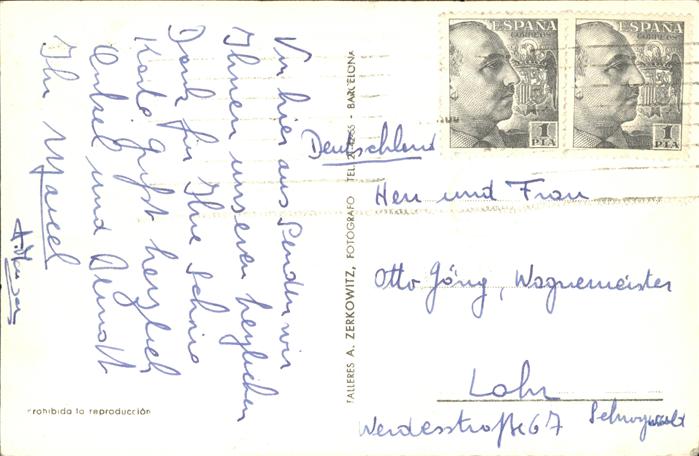 Von hier aus senden wir
Ihnen unseren herzlichen
Dank für Ihre schöne
Karte. Grüßt herzlich
und
Ihr Marcel
TALLERES A. ZERKOWITZ, FOTOGRAFO TEL. - BARCELONA
Prohibida la reproducción
ESPAÑA
CORREOS
1
PTA
ESPAÑA
CORREOS
1
PTA
Deutschland
Herrn und Frau
Otto Göng, Wagnermeister
Lahr
Werdesstraße 67
Schwarzwald